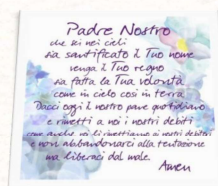 Padre Nostro
che sei nei cieli
sia santificato il Tuo nome
venga il Tuo regno
sia fatta la Tua volontà
come in cielo così in terra.
Dacci oggi il nostro pane quotidiano
e rimetti a noi i nostri debiti
come anche noi li rimettiamo ai nostri debitori
e non abbandonarci alla tentazione
ma liberaci dal male.
Amen